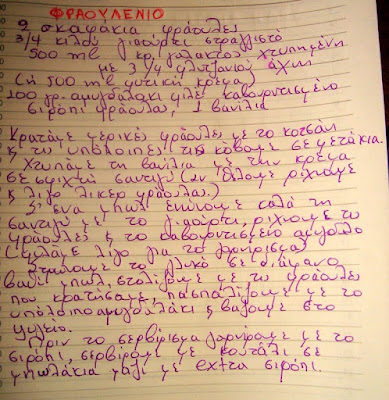 ΦΡΑΟΥΛΕΝΙΟ
9 σκαφάκια φράουλες
3/4 κιλού γιαούρτι στραγγιστό
500 ml κρ. γάλακτος χτυπημένη
με 3/4 φλυτζανιού άχνη
(ή 500 ml φυτική κρέμα)
100 γρ. αμυγδαλάκι φιλέ καβουρντισμένο
σιρόπι φράουλα, 1 βανίλια
Κρατάμε μερικές φράουλες με το κοτσάνι
& τις υπόλοιπες τις κόβουμε σε φετάκια.
Χτυπάμε τη βανίλια με την κρέμα
σε σφιχτή σαντιγύ (αν θέλουμε ρίχνουμε
& λίγο λικέρ φράουλας.)
Σ' ένα μπωλ ενώνουμε καλά τη
σαντιγύ με το γιαούρτι, ρίχνουμε το
φράουλες & το καβουρντισμένο αμύγδαλο
(φυλάμε λίγο για το γαρνίρισμα)
Βάζουμε το γλυκό σε διάφανο
βαθύ μπωλ, στολίζουμε με το φράουλες
που κρατήσαμε, πασπαλίζουμε με το
υπόλοιπο αμυγδαλάκι & βάζουμε στο
ψυγείο.
Πριν το σερβίρισμα γαρνίρουμε με το
σιρόπι, σερβίρουμε με κουτάλι σε
μπωλάκια μαζί με extra σιρόπι.